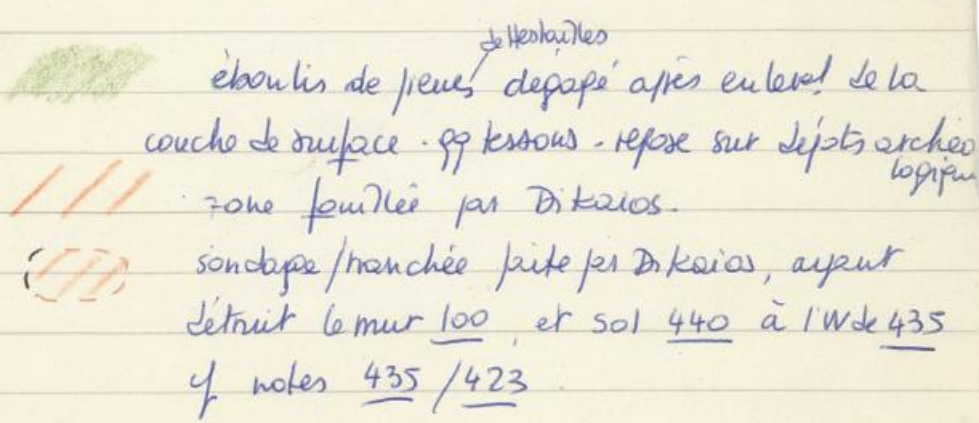 de ttes tailles
éboulis de pierres dégagé après enlevt de la
couche de surface - qq tessons - repose sur dépôts archéo
logiques
zone fouillée par Dikaios.
sondage/tranchée faite par Dikaios, ayant
détruit le mur 100, et sol 440 à l'W de 435
cf notes 435/423.